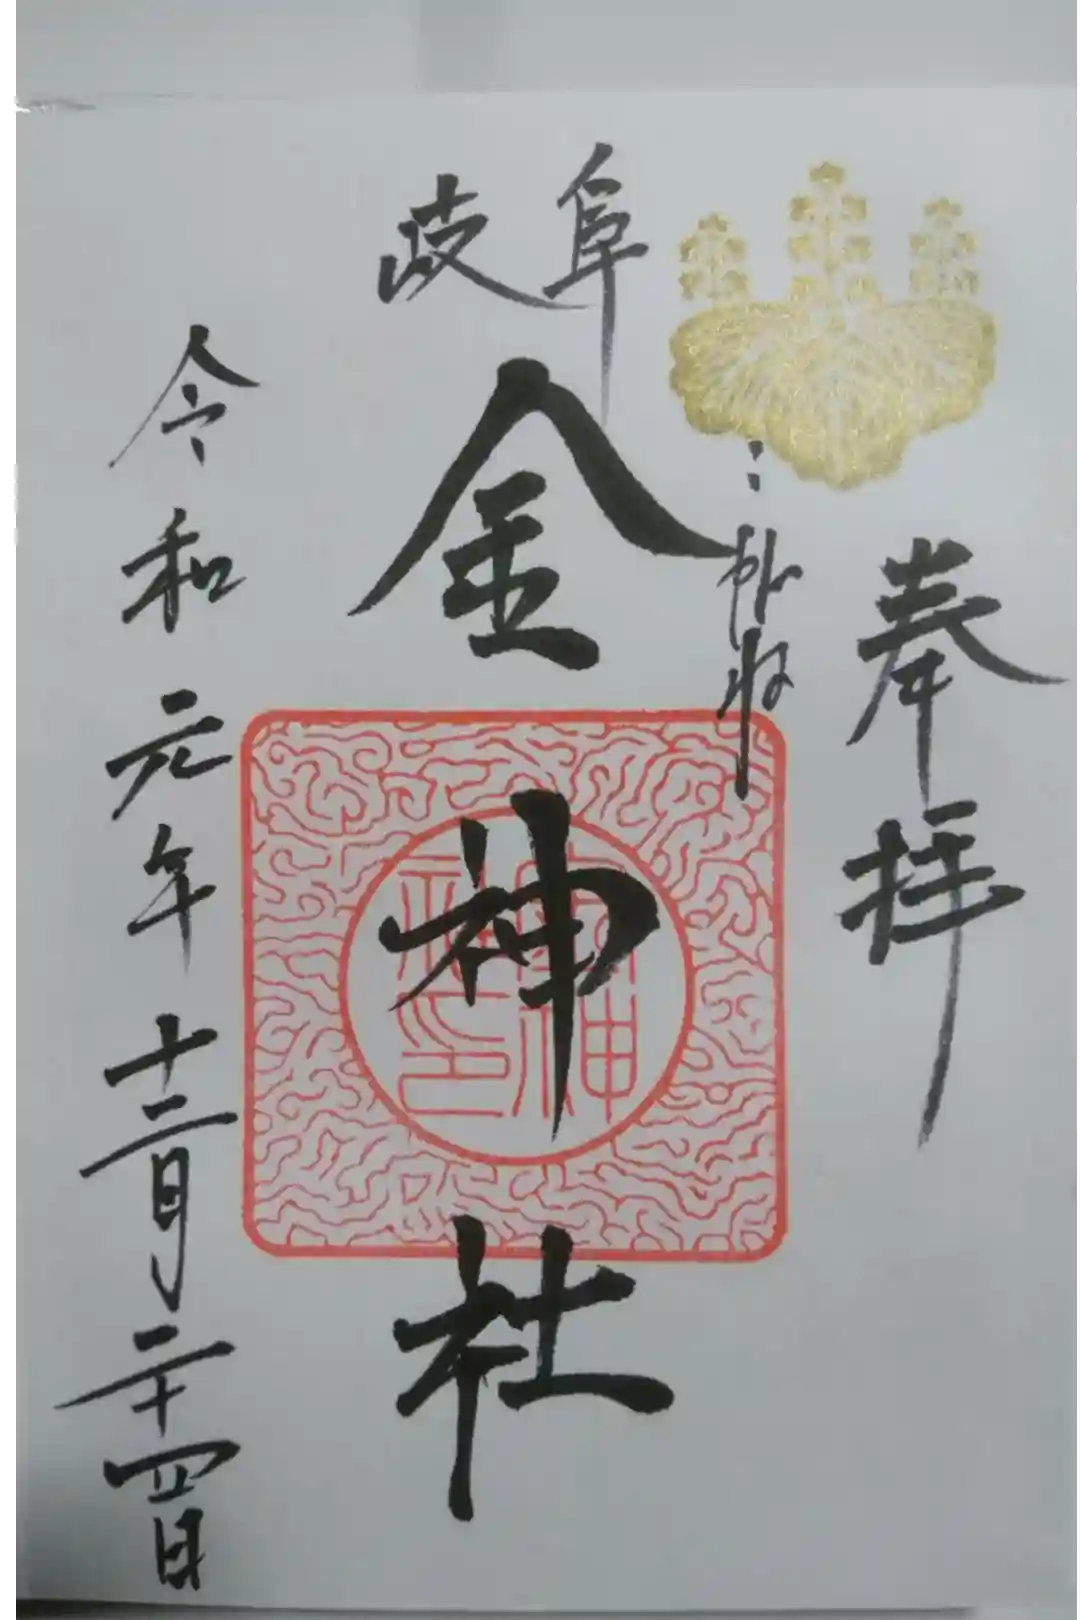 奉拝
岐阜
金神社
令和元年十二月二十四日